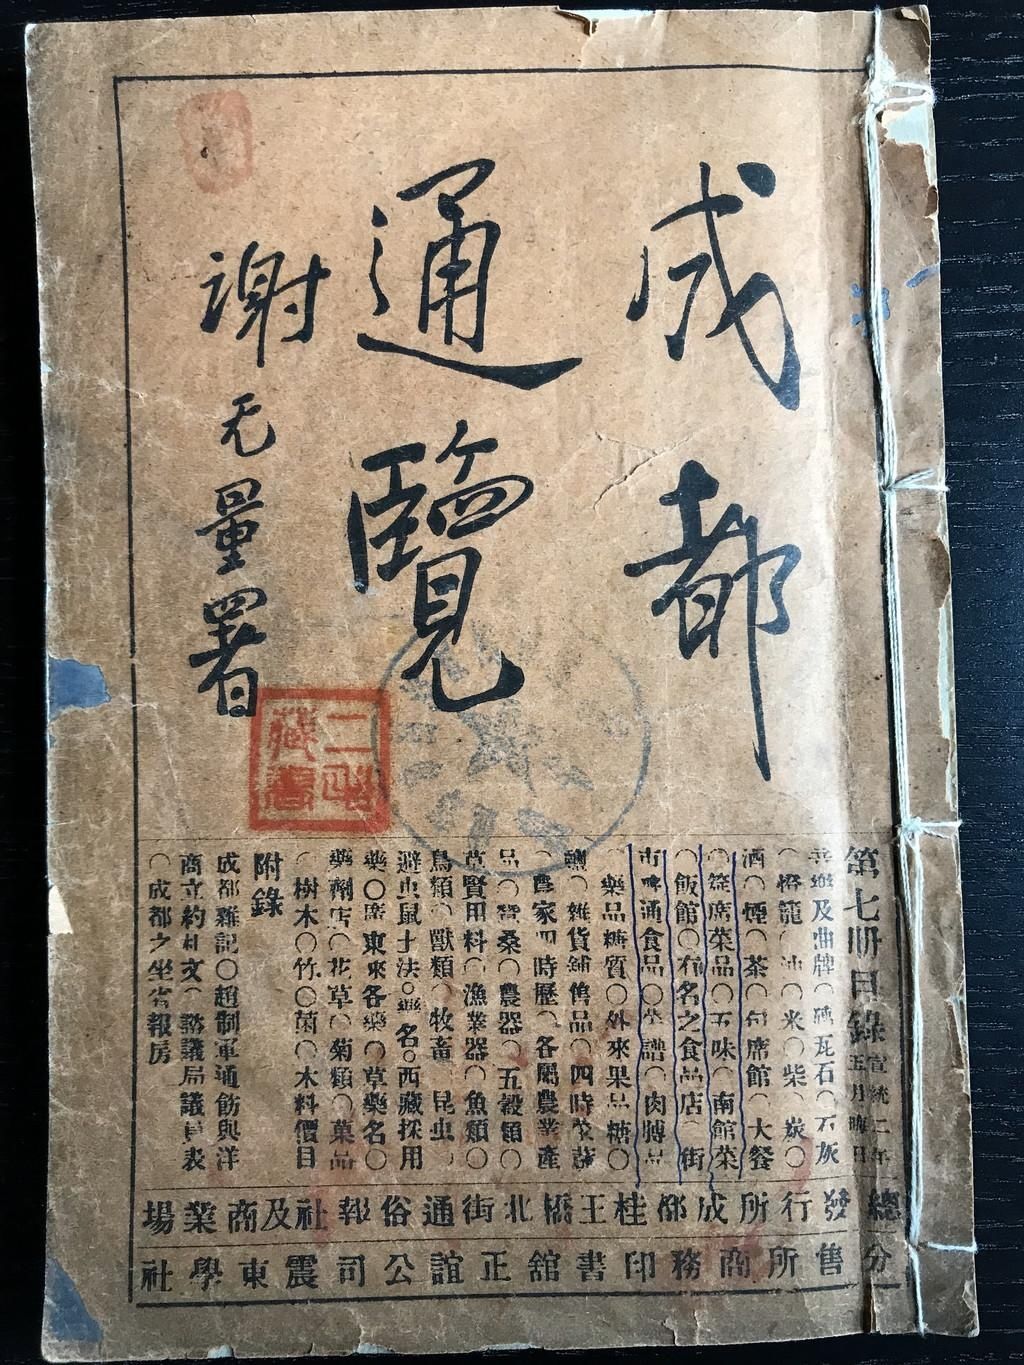 成都
通覽
謝无量署
二酉
藏書
第七冊目錄 宣統二年
五月晦日
及曲牌○磚瓦石○石灰
○燈籠○油○米○柴○炭○
酒○煙○茶○包席館○大餐
○筵席菜品○五味○南館菜
○飯館○有名之食品店○街
市普通食品○肉脯品
○藥品糖質○外來果品糖○
鹽○雜貨鋪售品○四時菜蔬
○農家四時歷○各屬農業產
品○蠶桑○農器○五穀類○
草賢用料○漁業器○魚類○
鳥類○獸類○牧畜○昆虫○
避虫鼠土法○藥名○西藏採用
藥○廣東來各藥○草藥名○
藥劑店○花草○菊類○菓品
○樹木○竹○菌○木料價目
附錄
成都雜記○趙制軍通飭與洋
商立約札文○諮議局議員表
○成都之坐省報房
總發行所成都桂王橋北街通俗報社及商業場
分售所商務印書館正誼公司震東學社